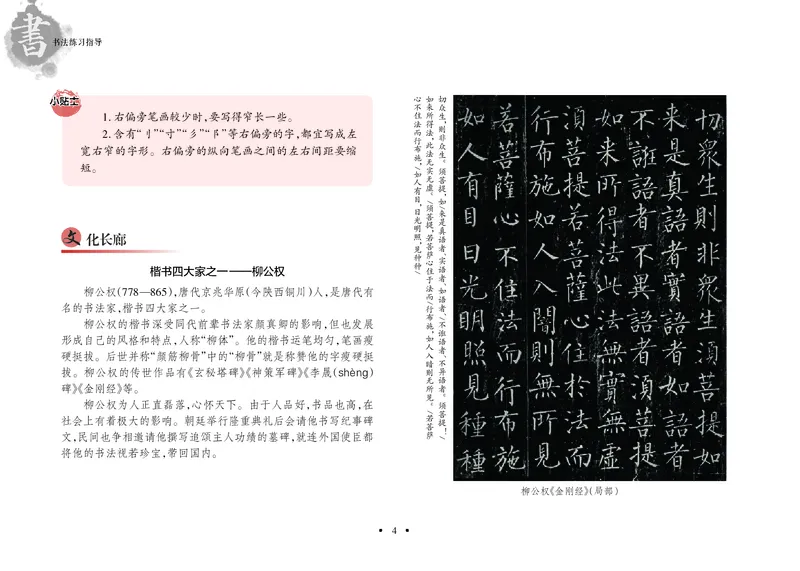 書
书法练习指导
小贴士
1. 右偏旁笔画较少时,要写得窄长一些。
2. 含有“刂”“寸”“彡”“阝”等右偏旁的字,都宜写成左
宽右窄的字形。右偏旁的纵向笔画之间的左右间距要缩
短。
文化长廊
楷书四大家之一——柳公权
柳公权(778—865),唐代京兆华原(今陕西铜川)人,是唐代有
名的书法家,楷书四大家之一。
柳公权的楷书深受同代前辈书法家颜真卿的影响,但也发展
形成自己的风格和特点,人称“柳体”。他的楷书运笔均匀,笔画瘦
硬挺拔。后世并称“颜筋柳骨”中的“柳骨”就是称赞他的字瘦硬挺
拔。柳公权的传世作品有《玄秘塔碑》《神策军碑》《李晟(shèng)
碑》《金刚经》等。
柳公权为人正直磊落,心怀天下。由于人品好,书品也高,在
社会上有着极大的影响。朝廷举行隆重典礼后会请他书写纪事碑
文,民间也争相邀请他撰写追颂主人功绩的墓碑,就连外国使臣都
将他的书法视若珍宝,带回国内。
切众生，则非众生。须菩提，如/来是真语者、实语者、如语者、/不诳语者、不异语者。须菩提！/
如来所得法，此法无实无虚。/须菩提，若菩萨心住于法而/行布施，如人入暗则无所见。/若菩萨
心不住法而行布施，/如人有目，日光明照，见种种/
切眾生則非眾生須菩提如
来是真語者實語者如語者
不誑語者不異語者須菩提
如来所得法此法無實無虛
須菩提若菩薩心住於法而
行布施如人入闇則無所見
若菩薩心不住法而行布施
如人有目日光明照見種種
柳公权《金刚经》(局部)
• 4 •